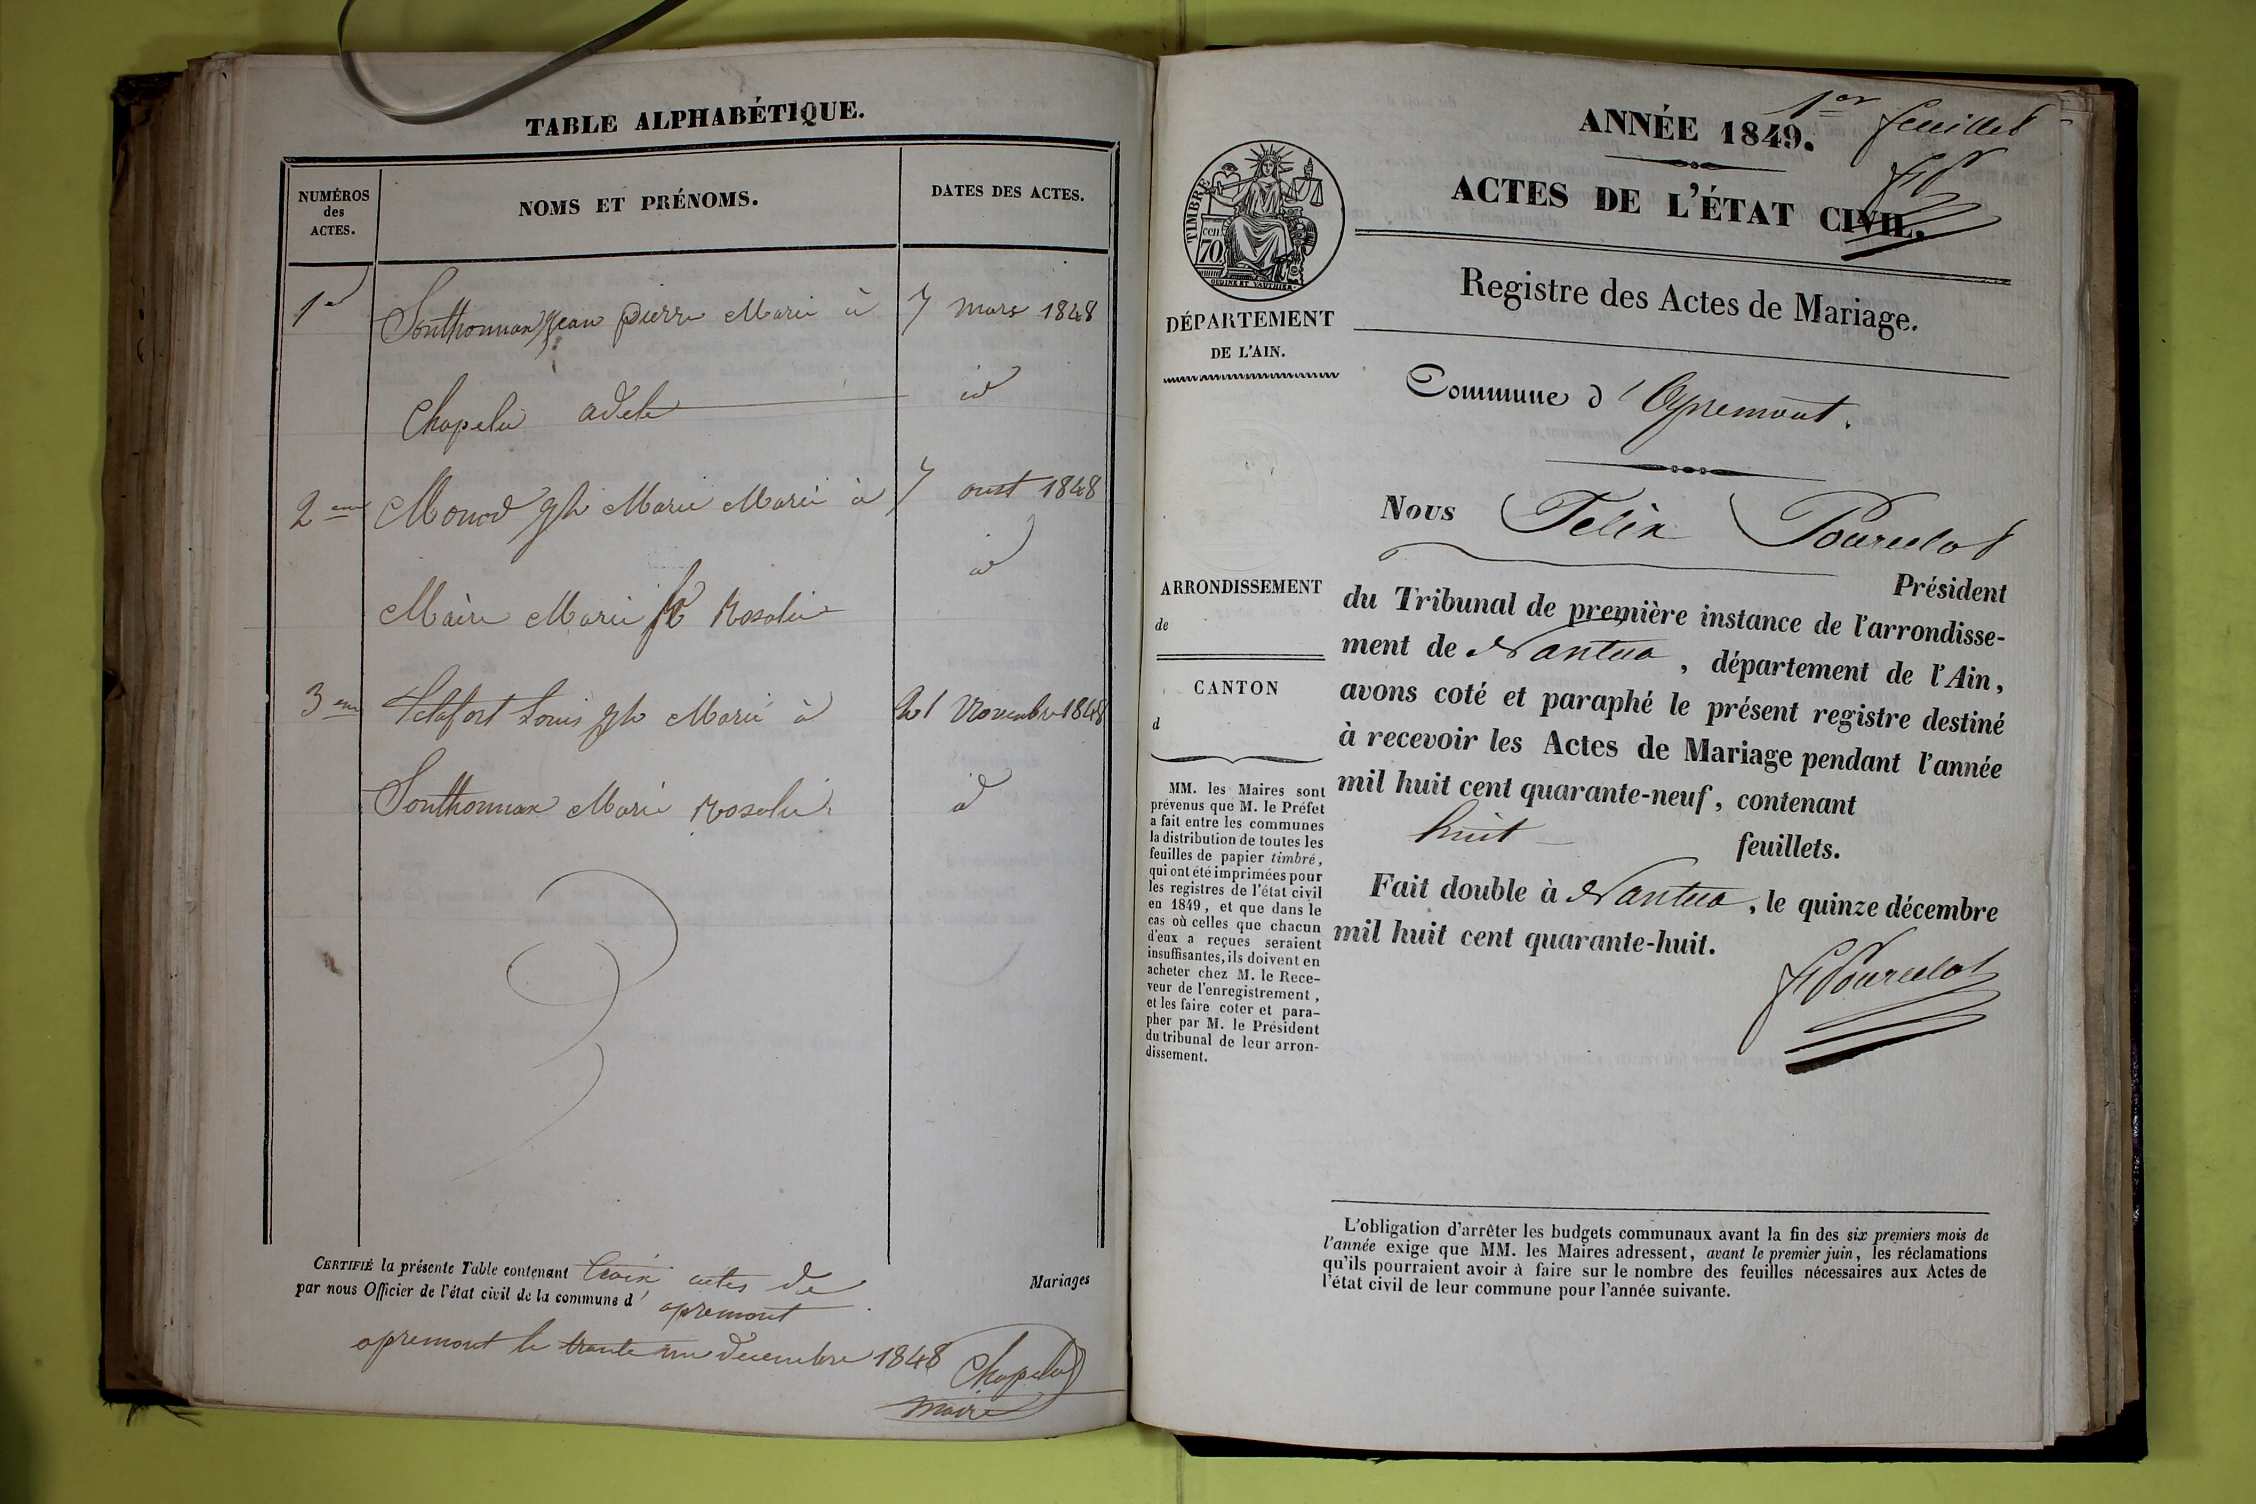 TABLE ALPHABÉTIQUE.
NUMÉROS
des
ACTES.
NOMS ET PRÉNOMS.
DATES DES ACTES.
Sonthonnax Jean pierre Marié à 7 mars 1848
Chapelu adele id
2 eme Monod Marie Marié à 7 aust 1848
Maire Marie Rosalie id
3 eme Louis Marié à Novembre 1848
Sonthonnax Marie Rosalie id
CERTIFIÉ la présente Table contenant trois actes de Mariages
par nous Officier de l'état civil de la commune d' apremont
apremont le trente un decembre 1848
Chapelu
maire
1er feuillet
ANNÉE 1849.
ACTES DE L'ÉTAT CIVIL.
TIMBRE
70 cen.
OUDINE ET VAUTHIER.
Registre des Actes de Mariage.
DÉPARTEMENT
DE L'AIN.
Commune d'Apremont.
Nous Felix Pourcelot
Président
ARRONDISSEMENT
de
CANTON
d
du Tribunal de première instance de l'arrondisse-
ment de Nantua, département de l'Ain,
avons coté et paraphé le présent registre destiné
à recevoir les Actes de Mariage pendant l'année
mil huit cent quarante-neuf, contenant
huit feuillets.
Fait double à Nantua, le quinze décembre
mil huit cent quarante-huit.
F Pourcelot
MM. les Maires sont
prévenus que M. le Préfet
a fait entre les communes
la distribution de toutes les
feuilles de papier timbré,
qui ont été imprimées pour
les registres de l'état civil
en 1849, et que dans le
cas où celles que chacun
d'eux a reçues seraient
insuffisantes, ils doivent en
acheter chez M. le Rece-
veur de l'enregistrement,
et les faire coter et para-
pher par M. le Président
du tribunal de leur arron-
dissement.
L'obligation d'arrêter les budgets communaux avant la fin des six premiers mois de
l'année exige que MM. les Maires adressent, avant le premier juin, les réclamations
qu'ils pourraient avoir à faire sur le nombre des feuilles nécessaires aux Actes de
l'état civil de leur commune pour l'année suivante.